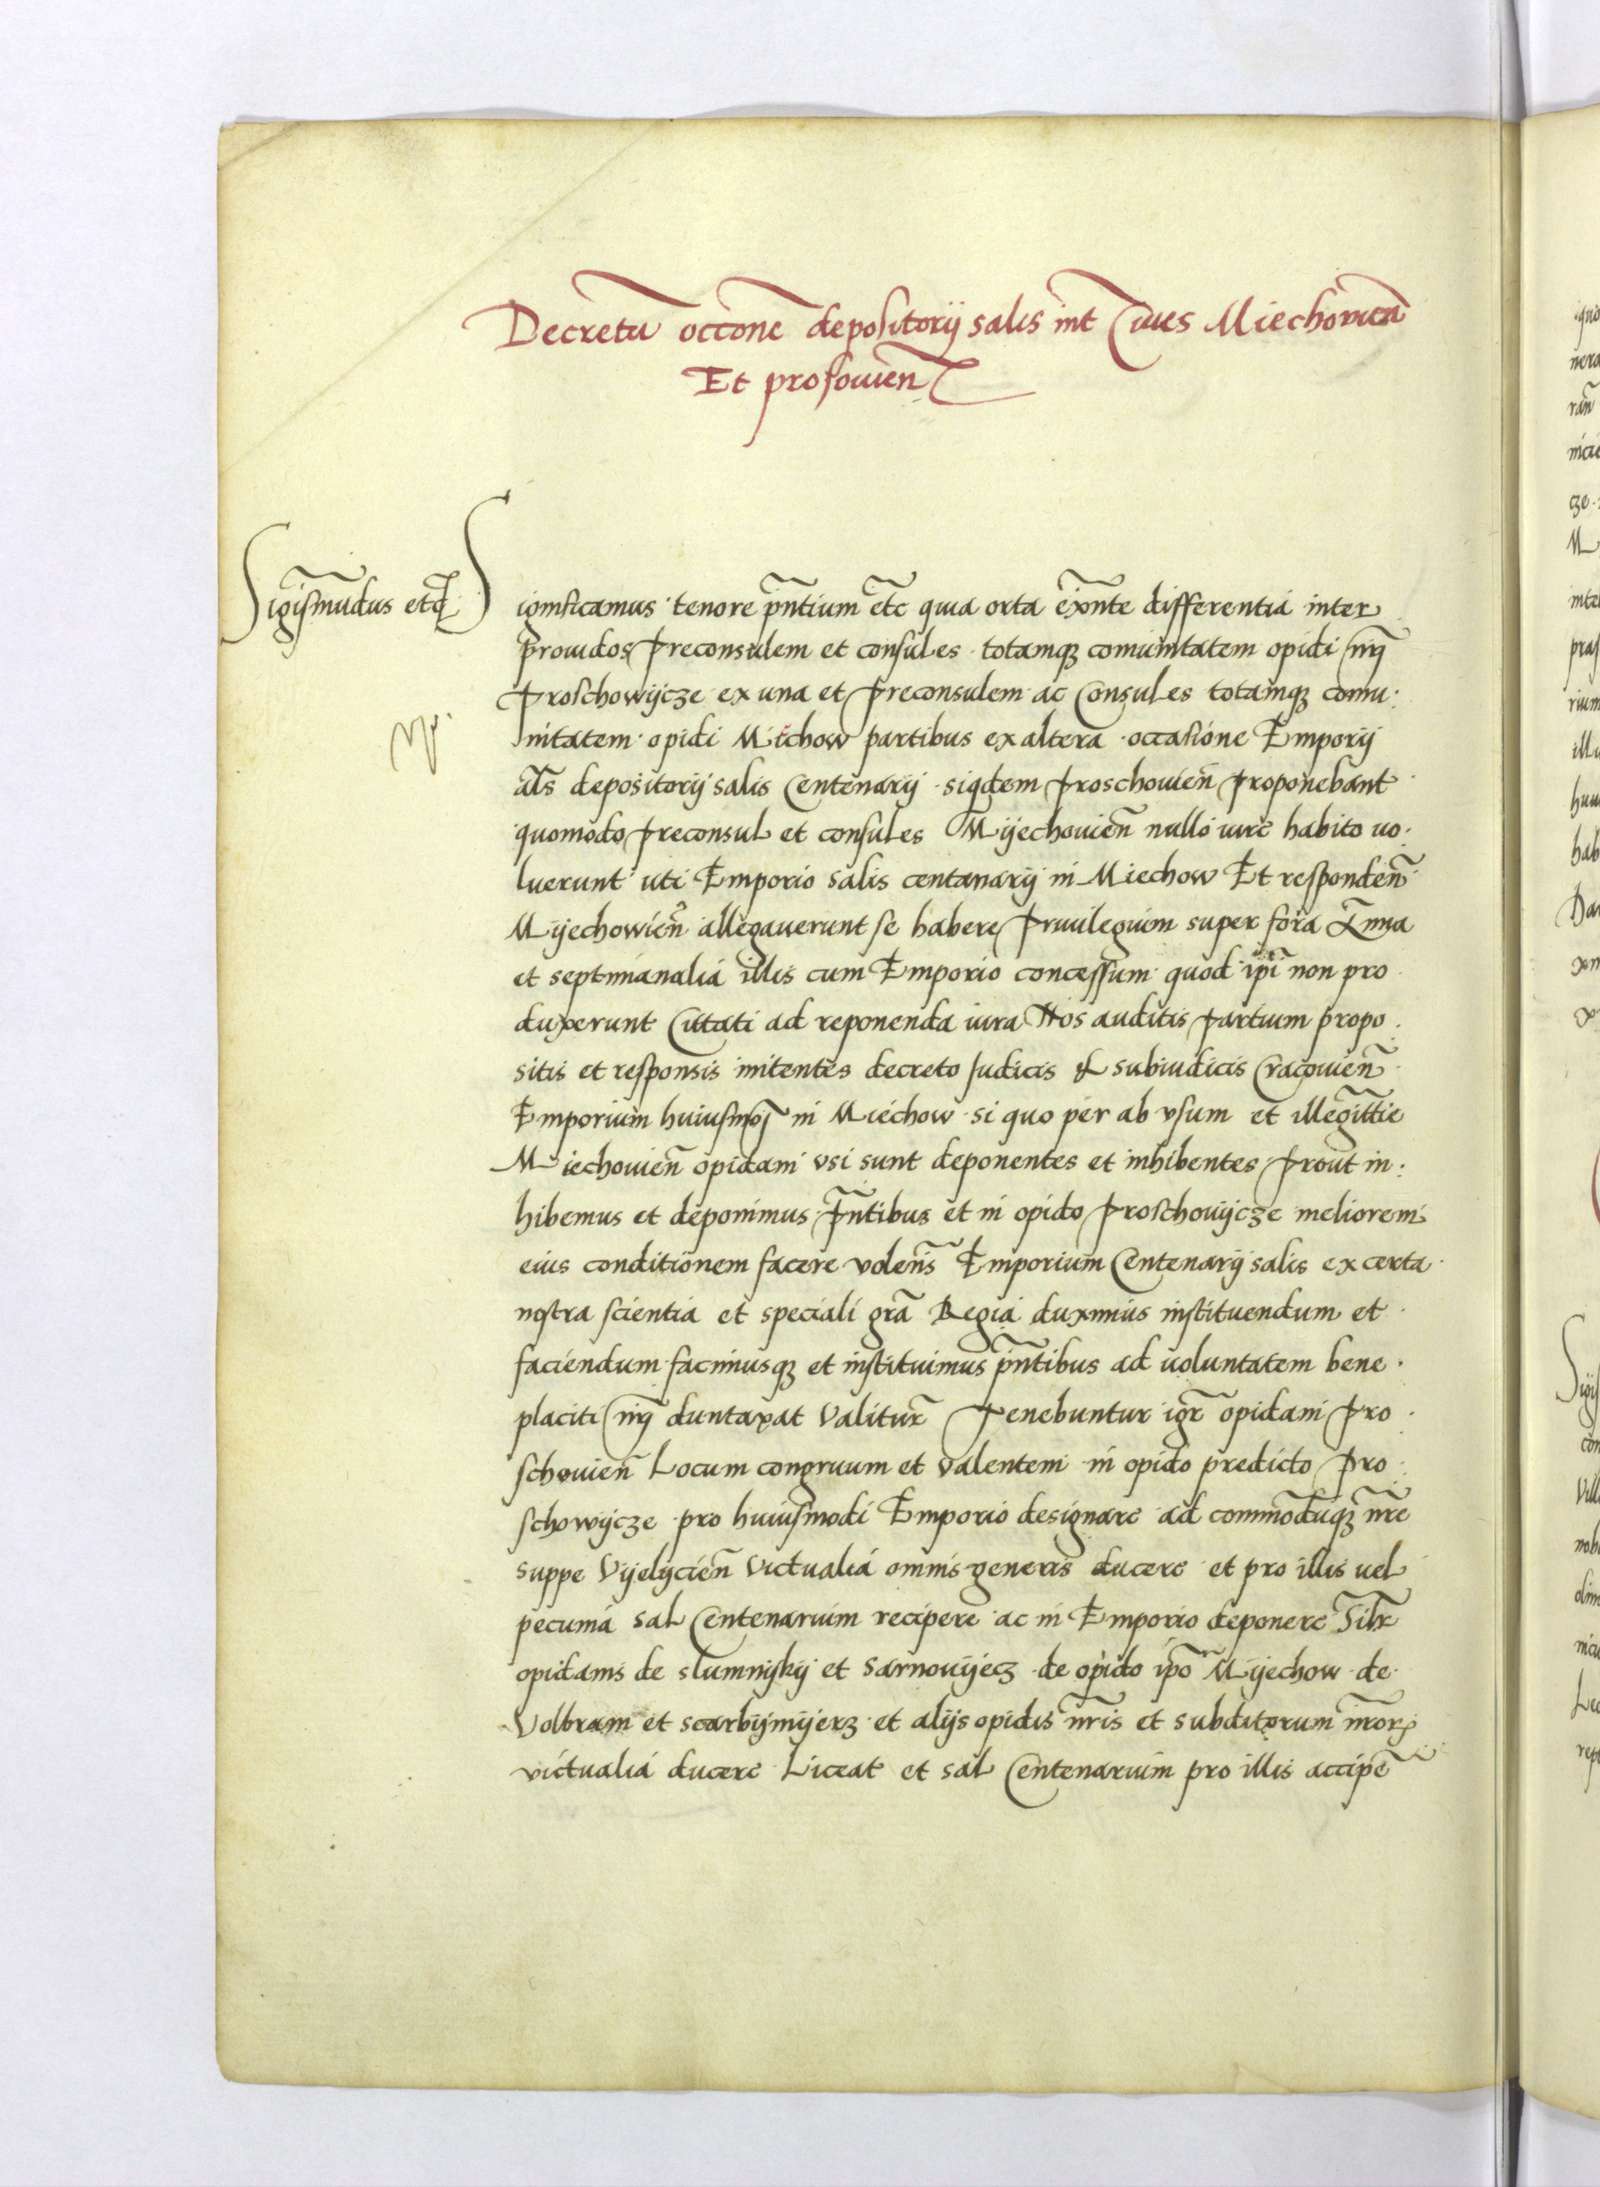 Decretū occōne depositorij salis int Ciues Miechouien̄
Et prosouien̄
Sigismūdus etc Significamus tenore p̄ntium etc quia orta exn̄te differentia inter
prouidos preconsulem et consules totamq̃ comunitatem opidi nr̄i
Proschowijcze ex una et preconsulem ac Consules totamq̃ comu:
nitatem opidi Michow partibus ex altera occasione Emporij
al̄s depositorij salis Centenarij siqdem proschouien̄ proponebant
quomodo preconsul et consules Mijechouien̄ nullo iure habito uo.
luerunt uti Emporio salis centanarij in Miechow Et responden̄
Mijechowien̄ allegauerunt se habere priuilegium super fora
et septimanalia illis cum Emporio concessum quod ip̄i non pro
duxerunt Cittati ad reponenda iura Nos auditis partium propo.
sitis et responsis initentes decreto Iudicis & subiudicis Cracouien̄
Emporium huiusmoj̄ in Miechow si quo per ab vsum et illegitt̄ie
Miechouien̄ opidani vsi sunt deponentes et inhibentes prout in:
hibemus et deponimus p̄ntibus et in opido proschovijcze meliorem
eius conditionem facere volen̄s Emporium Centenarij salis ex certa
nostra scientia et speciali gr̄a Regia duximus instituendum et
faciendum facimusq̃ et instituimus p̄ntibus ad uoluntatem bene.
placiti nr̄i duntaxat Valitur̄ Tenebuntur igr̄ opidani pro.
schouien̄ Locum congruum et valentem in opido predicto pro
schowijcze pro huiusmodi Emporio designare ad commodūq̃ nr̄e
suppe Vijelijcien̄ Victualia omnis generis ducere et pro illis uel
pecunia sal Centenarium recipere ac in Emporio deponere Sil̄r
opidanis de slumnijkij et sarnouijecz de opido ip̄o Mijechow de
Volbram et scarbijmijerz et alijs opidis nr̄is et subditorum nr̄orꝝ
victualia ducere Liceat et sal Centenarium pro illis accipe